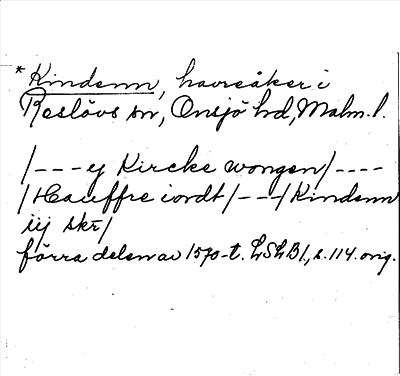 * Kindenn, havreåker i
Reslövs sn, Onsjö hd, Malm. l.
/---ej Kircke wongen/----
/Hauffre iordt/---/Kindenn
iij skr/
förra delen av 1570-t. LSLB1, s. 114. orig.